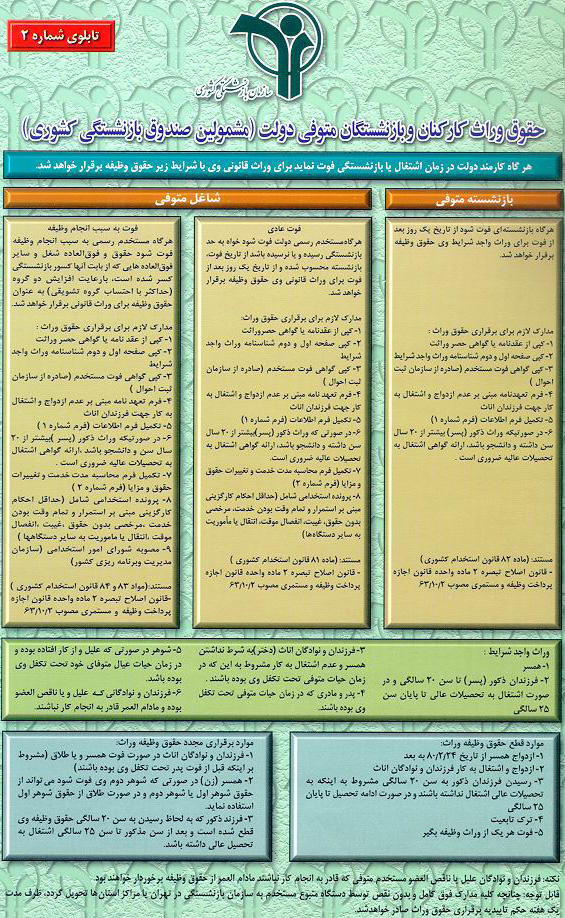 تابلوی شماره ۲
سازمان بازنشستگی کشوری
حقوق وراث کارکنان و بازنشستگان متوفی دولت (مشمولین صندوق بازنشستگی کشوری)
هر گاه کارمند دولت در زمان اشتغال یا بازنشستگی فوت نماید برای وراث قانونی وی با شرایط زیر حقوق وظیفه برقرار خواهد شد.
بازنشسته متوفی
هرگاه بازنشسته‌ای فوت شود از تاریخ یک روز بعد
از فوت برای وراث واجد شرایط وی حقوق وظیفه
برقرار خواهد شد.
مدارک لازم برای برقراری حقوق وراث :
۱- کپی از عقدنامه یا گواهی حصر وراثت
۲- کپی صفحه اول و دوم شناسنامه وراث واجد شرایط
۳- کپی گواهی فوت مستخدم (صادره از سازمان ثبت
احوال )
۴- فرم تعهدنامه مبنی بر عدم ازدواج و اشتغال به
کار فرزندان اناث
۵- تکمیل فرم اطلاعات (فرم شماره ۱)
۶- در صورتیکه وراث ذکور (پسر) بیشتر از ۲۰ سال
سن داشته و دانشجو باشد، ارائه گواهی اشتغال به
تحصیلات عالیه ضروری است.
مستند: (ماده ۸۲ قانون استخدام کشوری )
- قانون اصلاح تبصره ۲ ماده واحده قانون اجازه
پرداخت وظیفه و مستمری مصوب ۶۳/۱۰/۲
شاغل متوفی
فوت عادی
هرگاه مستخدم رسمی دولت فوت شود خواه به حد
بازنشستگی رسیده و یا نرسیده باشد از تاریخ فوت،
بازنشسته محسوب شده و از تاریخ یک روز بعد از
فوت برای وراث قانونی وی حقوق وظیفه برقرار
خواهد شد.
مدارک لازم برای برقراری حقوق وراث:
۱- کپی از عقدنامه یا گواهی حصروراثت
۲- کپی صفحه اول و دوم شناسنامه وراث واجد
شرایط
۳- کپی گواهی فوت مستخدم (صادره از سازمان
ثبت احوال )
۴- فرم تعهدنامه مبنی بر عدم ازدواج و اشتغال به
کار جهت فرزندان اناث
۵- تکمیل فرم اطلاعات (فرم شماره ۱)
۶- در صورتی که وراث ذکور (پسر) بیشتر از ۲۰ سال
سن داشته و دانشجو باشد، ارائه گواهی اشتغال به
تحصیلات عالیه ضروری است.
۷- تکمیل فرم محاسبه مدت خدمت و تغییرات حقوق
و مزایا (فرم شماره ۲)
۸- پرونده استخدامی شامل (حداقل احکام کارگزینی
مبنی بر استمرار و تمام وقت بودن خدمت، مرخصی
بدون حقوق، غیبت، انفصال موقت، انتقال یا مأموریت
به سایر دستگاه‌ها)
مستند: (ماده ۸۱ قانون استخدام کشوری)
- قانون اصلاح تبصره ۲ ماده واحده قانون اجازه
پرداخت وظیفه و مستمری مصوب ۶۳/۱۰/۲
فوت به سبب انجام وظیفه
هرگاه مستخدم رسمی به سبب انجام وظیفه
فوت شود حقوق و فوق‌العاده شغل و سایر
فوق‌العاده هایی که از بابت آنها کسور بازنشستگی
کسر شده است، بارعایت افزایش دو گروه
(حداکثر با احتساب گروه تشویقی) به عنوان
حقوق وظیفه برای وراث قانونی برقرار خواهد شد.
مدارک لازم برای برقراری حقوق وراث :
۱- کپی از عقد نامه یا گواهی حصر وراثت
۲- کپی صفحه اول و دوم شناسنامه وراث واجد
شرایط
۳- کپی گواهی فوت مستخدم (صادره از سازمان
ثبت احوال )
۴- فرم تعهد نامه مبنی بر عدم ازدواج و اشتغال
به کار جهت فرزندان اناث
۵- تکمیل فرم اطلاعات (فرم شماره ۱)
۶- در صورتیکه وراث ذکور (پسر) بیشتر از ۲۰
سال سن و دانشجو باشد، ارائه گواهی اشتغال
به تحصیلات عالیه ضروری است .
۷- تکمیل فرم محاسبه مدت خدمت و تغییرات
حقوق و مزایا (فرم شماره ۲ )
۸- پرونده استخدامی شامل (حداقل احکام
کارگزینی مبنی بر استمرار و تمام وقت بودن
خدمت ،مرخصی بدون حقوق ، غیبت، انفصال
موقت، انتقال یا ماموریت به سایر دستگاهها )
۹- مصوبه شورای امور استخدامی (سازمان
مدیریت وبرنامه ریزی کشور)
مستند:(مواد ۸۳ و ۸۴ قانون استخدام کشوری )
-قانون اصلاح تبصره ۲ ماده واحده قانون اجازه
پرداخت وظیفه و مستمری مصوب ۶۳/۱۰/۲
وراث واجد شرایط :
۱- همسر
۲- فرزندان ذکور (پسر) تا سن ۲۰ سالگی و در
صورت اشتغال به تحصیلات عالی تا پایان سن
۲۵ سالگی
۳- فرزندان و نوادگان اناث (دختر) به شرط نداشتن
همسر و عدم اشتغال به کار مشروط به این که در
زمان حیات متوفی تحت تکفل وی بوده باشند .
۴- پدر و مادری که در زمان حیات متوفی تحت تکفل
وی بوده باشند.
۵- شوهر در صورتی که علیل و از کار افتاده بوده و
در زمان حیات عیال متوفای خود تحت تکفل وی
بوده باشد.
۶- فرزندان و نوادگانی که علیل و یا ناقص العضو
بوده و مادام العمر قادر به انجام کار نباشند.
موارد قطع حقوق وظیفه وراث:
۱- ازدواج همسر از تاریخ ۸۰/۲/۲۴ به بعد
۲- ازدواج و اشتغال به کار فرزندان و نوادگان اناث
۳- رسیدن فرزندان ذکور به سن ۲۰ سالگی مشروط به اینکه به
تحصیلات عالی اشتغال نداشته باشند و در صورت ادامه تحصیل تا پایان
۲۵ سالگی
۴- ترک تابعیت
۵- فوت هر یک از وراث وظیفه بگیر
موارد برقراری مجدد حقوق وظیفه وراث:
۱- فرزندان و نوادگان اناث در صورت فوت همسر و یا طلاق (مشروط
بر اینکه قبل از فوت پدر تحت تکفل وی بوده باشند)
۲- همسر (زن) در صورتی که شوهر دوم وی فوت شود می‌تواند از
حقوق شوهر اول یا شوهر دوم و در صورت طلاق از حقوق شوهر اول
استفاده نماید.
۳- فرزند ذکور که به لحاظ رسیدن به سن ۲۰ سالگی حقوق وظیفه وی
قطع شده است و بعد از سن مذکور تا سن ۲۵ سالگی اشتغال به
تحصیل عالی داشته باشد.
نکته: فرزندان و نوادگان علیل یا ناقص العضو مستخدم متوفی که قادر به انجام کار نباشند مادام العمر از حقوق وظیفه برخوردار خواهند بود.
قابل توجه: چنانچه کلیه مدارک فوق کامل و بدون نقص توسط دستگاه متبوع مستخدم به سازمان بازنشستگی در تهران یا مراکز استان ها تحویل گردد، ظرف مدت
یک هفته حکم تأییدیه برقراری حقوق وراث صادر خواهدشد.